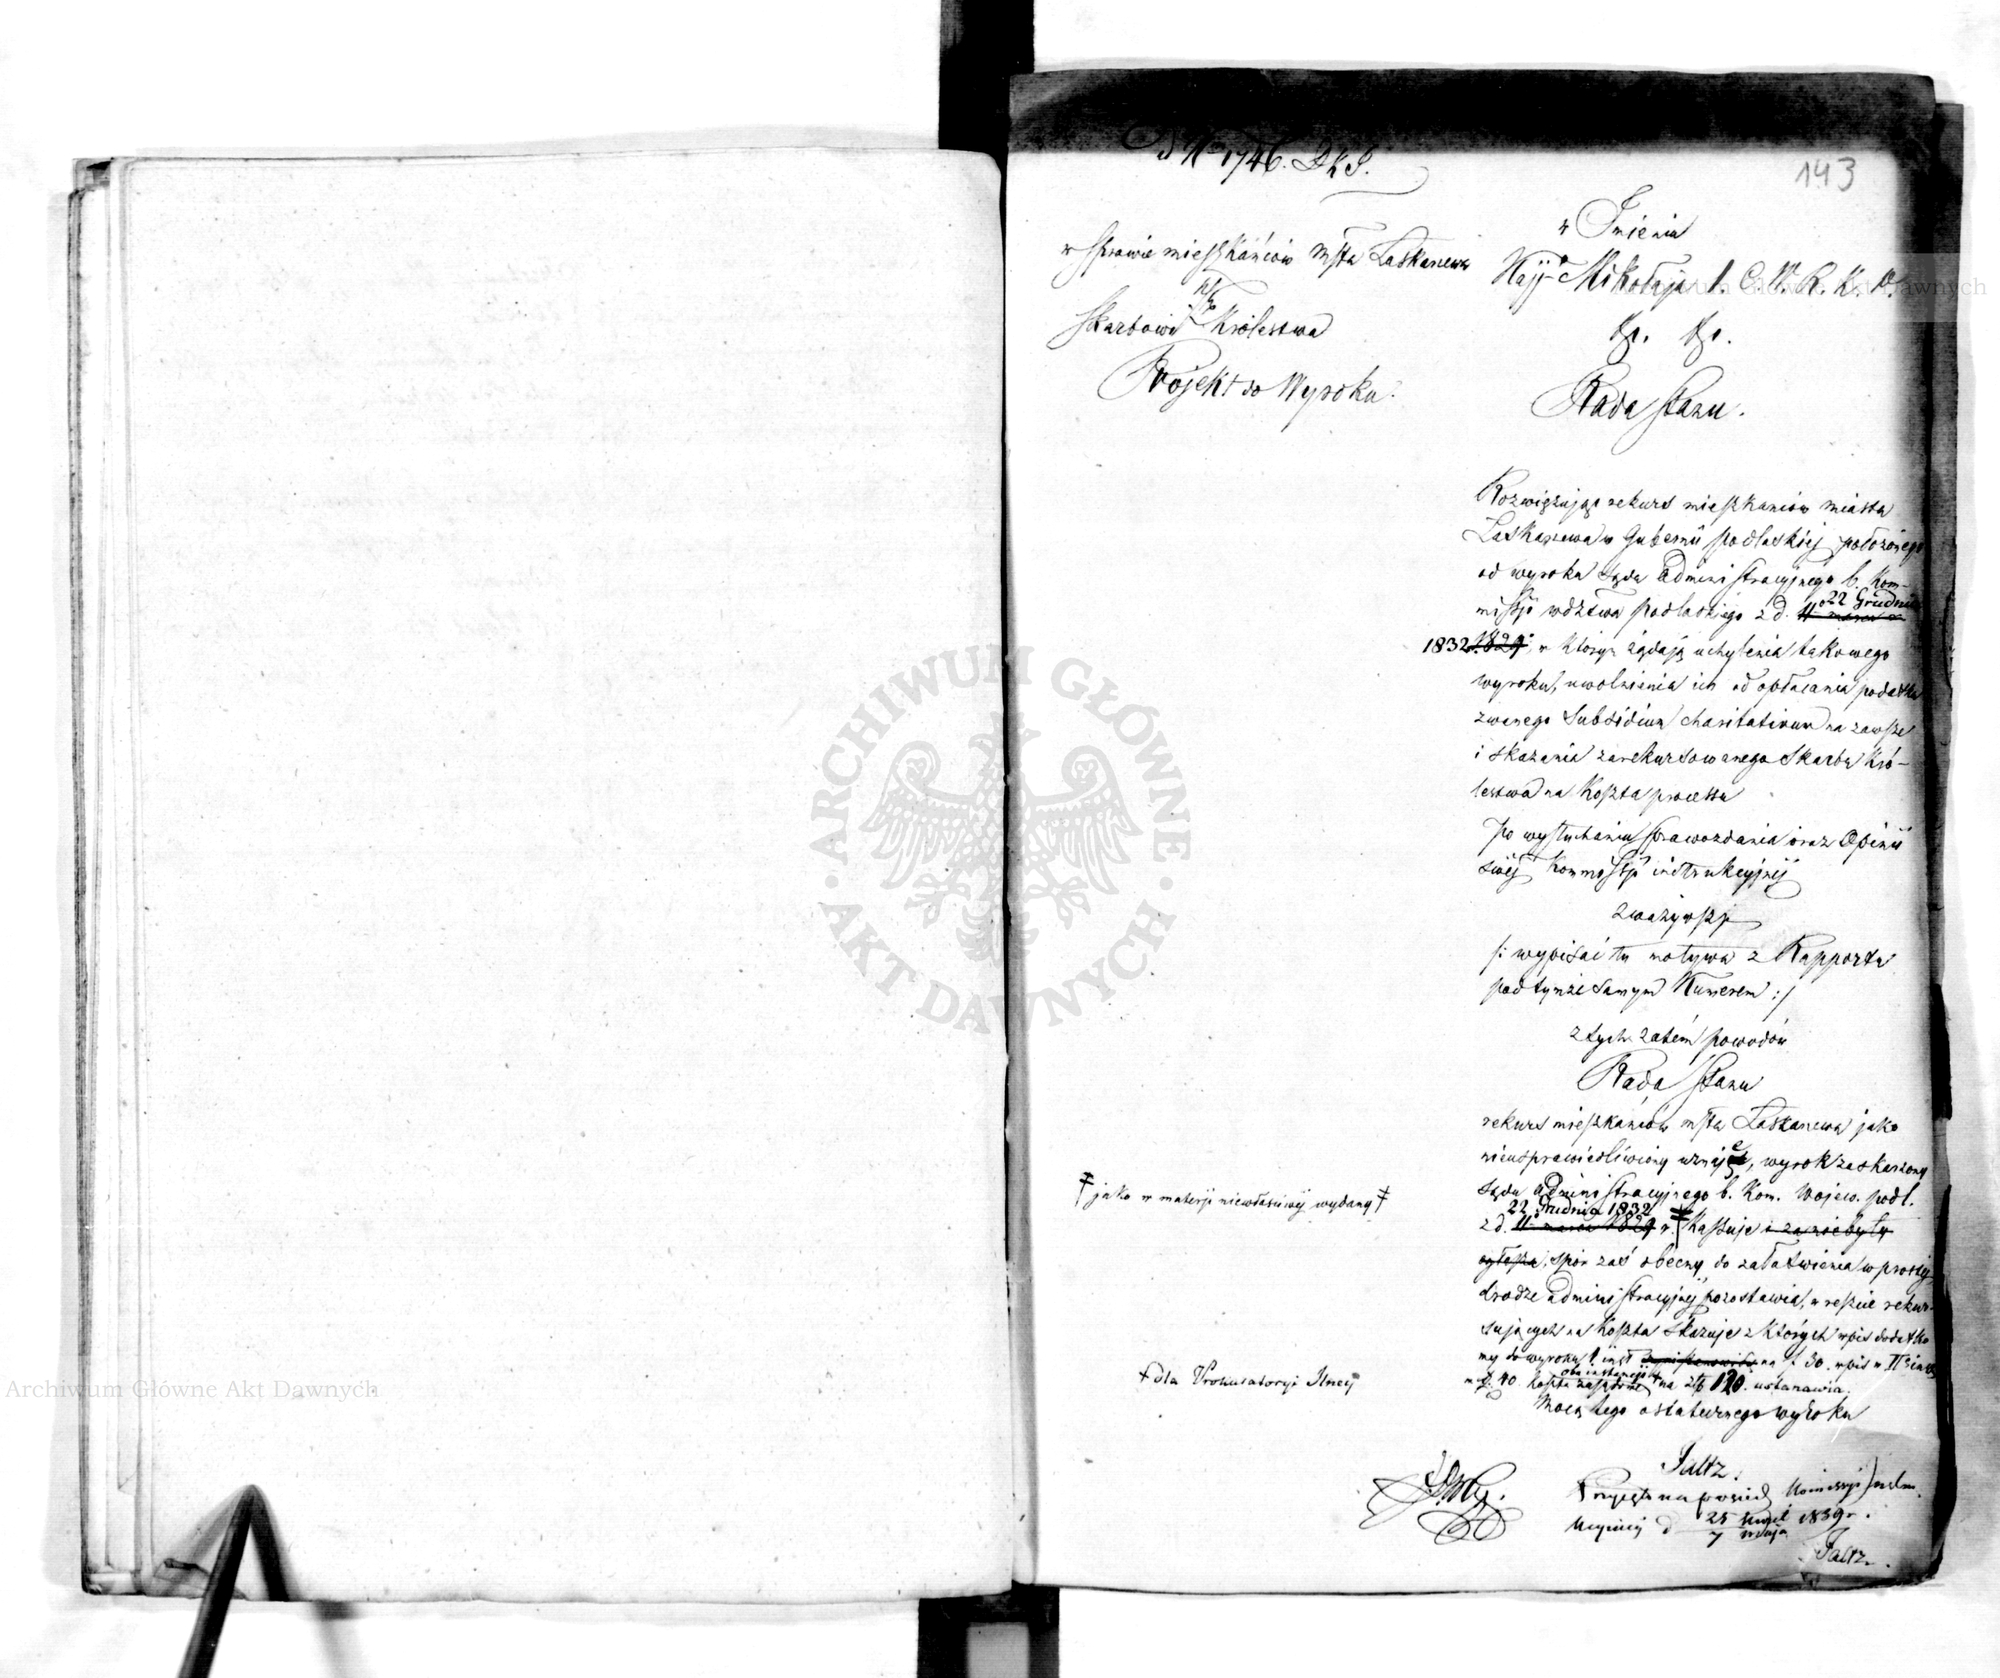 143
N 1746. D k S.
w Sprawie mieszkańców msta Łaskarzewa
Skarbowi Królestwa
Projekt do Wyroku.
w Imieniu
Nayj. Mikołaja I. C. W. R. K. P.
Rada Stanu.
Rozwiązując rekurs mieszkańców miasta
Łaskarzewa w Gubernii podlaskiej położonego
od wyroku Sądu administracyjnego b. Kom-
missji wdztwa podlaskiego z d. 11 marca 22 Grudnia
1832 1829 w którym żądają uchylenia takowego
wyroku, uwolnienia ich od opłacania podatku
zwanego Subsidium charitativum na zawsze
i skazania zarekursowanego Skarbu Kró-
lestwa na koszta processu
Po wysłuchaniu Sprawozdania oraz Opinii
swéj Kommissji instrukcyjnej
zważywszy
/: wypisać tu motywa z Rapportu
pod tymże samym Numerem :/
z tych zatém powodów
Rada Stanu
rekurs mieszkańców msta Łaskarzewa jako
nieusprawiedliwiony uznaje, wyrok zaskarżony
Sądu administracyjnego b. Kom. Wojew. podl.
22 Grudnia 1832
z d. 11 marca 1829 r. Kassuje i za niebyły
ogłasza, spór zaś obecny do załatwienia w prostej
drodze administracyjnej pozostawia, w reszcie rekur-
sujących na koszta skazuje z których wpis dodatko
wy do wyroku I inst na f 30. wpis w II inst
na f. 40. koszta zaś oba instancji na złp 120. ustanawia.
Mocą tego ostatecznego wyroku
† jako w materji niewłaściwéj wydany †
† dla Prokuratoryi Jlnej
Faltz.
Przyjęto na posied. Komissyi Instru
kcyjnej d 25 kwiet 1839 r.
7 maja
Faltz.
ARCHIWUM GŁÓWNE
AKT DAWNYCH
Archiwum Główne Akt Dawnych
Archiwum Główne Akt Dawnych